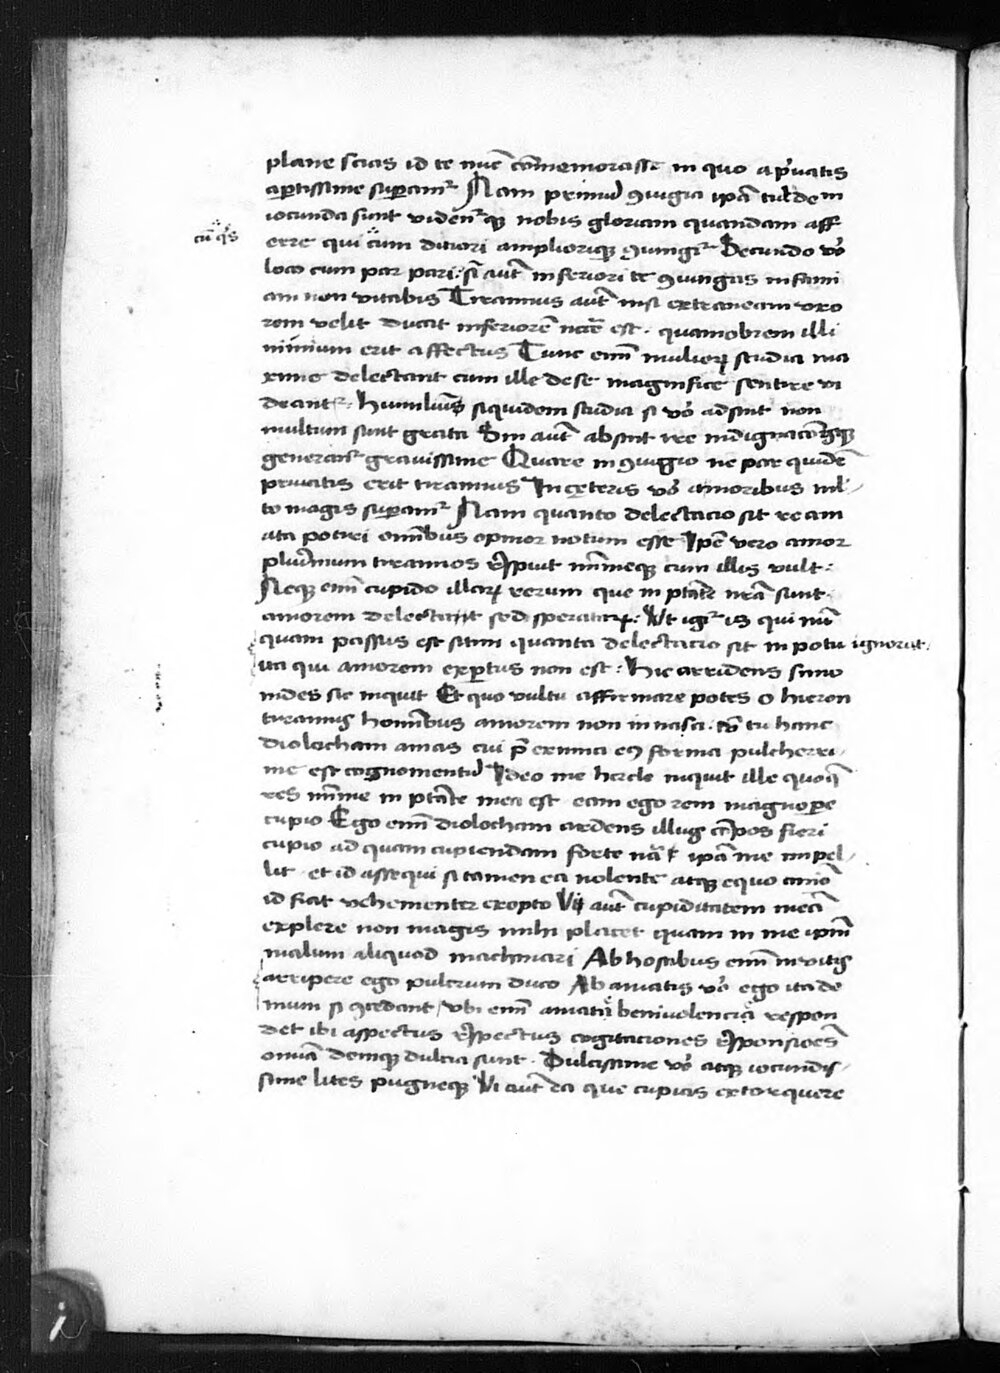 plane scias id te nūc cōmemorasse in quo a pͥuatis
aꝑtissime suꝑamͬ Nam primū ꝯiugia ipā tibi dem
iocunda sunt videnͬqꝫ nobis gloriam quandam aff
cū qͥs
erre qui cum ditiori ampliorique ꝯiungiͬ Secundo vͦo
loco cum par pari : si autē inferiori te ꝯiungas infami
am non vitabis Tirannus autē nisi extraneam vxo
rem velit ducit inferiorē nc̄ē est . quamobrem illi
nimium erit affectus Tunc enī mulierꝝ studia ma
xime delectant cum ille de se magnifice sentire vi
deantͬ . humiliūs siquidem studia si vͦo adsint non
multum sunt grata Sin autē absint ire indignacōnesqꝫ
generantͬ gravissime Quare in ꝯiugio ne par quidē
privatis erit tirannus In ceteris vͦo amoribus ml̄
to magis suꝑamͬ Nam quanto delectacio sit re am
ata potiri omībus opinor notum esse Ip̄e vero amor
pluͥmum tirannos respuit mīmeqꝫ cum illis vult :
Neqꝫ enī cupido illarꝝ rerum que in ptāte nrā sunt .
amorem delectant sed speratarꝝ : Vt igiͬ is qui nū
quam passus est sitim quanta delectacio sit in potu ignorat .
ita qui amorem exꝑtus non est : hic arridens simo
nides sic inquit Et quo vultu affirmare potes o hieron
tirannis homībus amorem non innasci . tu hanc
diolocham amas cui p̄ eximia eiꝰ forma pulcherri
me est cognomentū Ideo me hercle inquit ille quoqꝫ
res mīme in ptāte mea est eam ego rem magnoꝑe
cupio Ego enī diolocham ardens illiuꝰ cōpos fieri
cupio ad quam cupiendam forte nāͬ ipā me impel
lit . et id assequi si tamen ea nolente atqꝫ equo animō
id fiat vehementer exopto Vi autē cupiditatem meā
explere non magis mihi placet quam in me ipm̄
malum aliquod machinari Ab hostibus enī invitis
arripere ego pulcrum duco Ab amicis vͦo ego ita de
mum si ꝯcedant / vbi enī amicīͣ benivolenciͣā respon
det ibi aspectus respectus cogitaciones responsiōes
omīa deniqꝫ dulcia sunt . Dulcissime vͦo atqꝫ iocundis
sime lites pugneqꝫ Vi autē ea que cupias extorquere